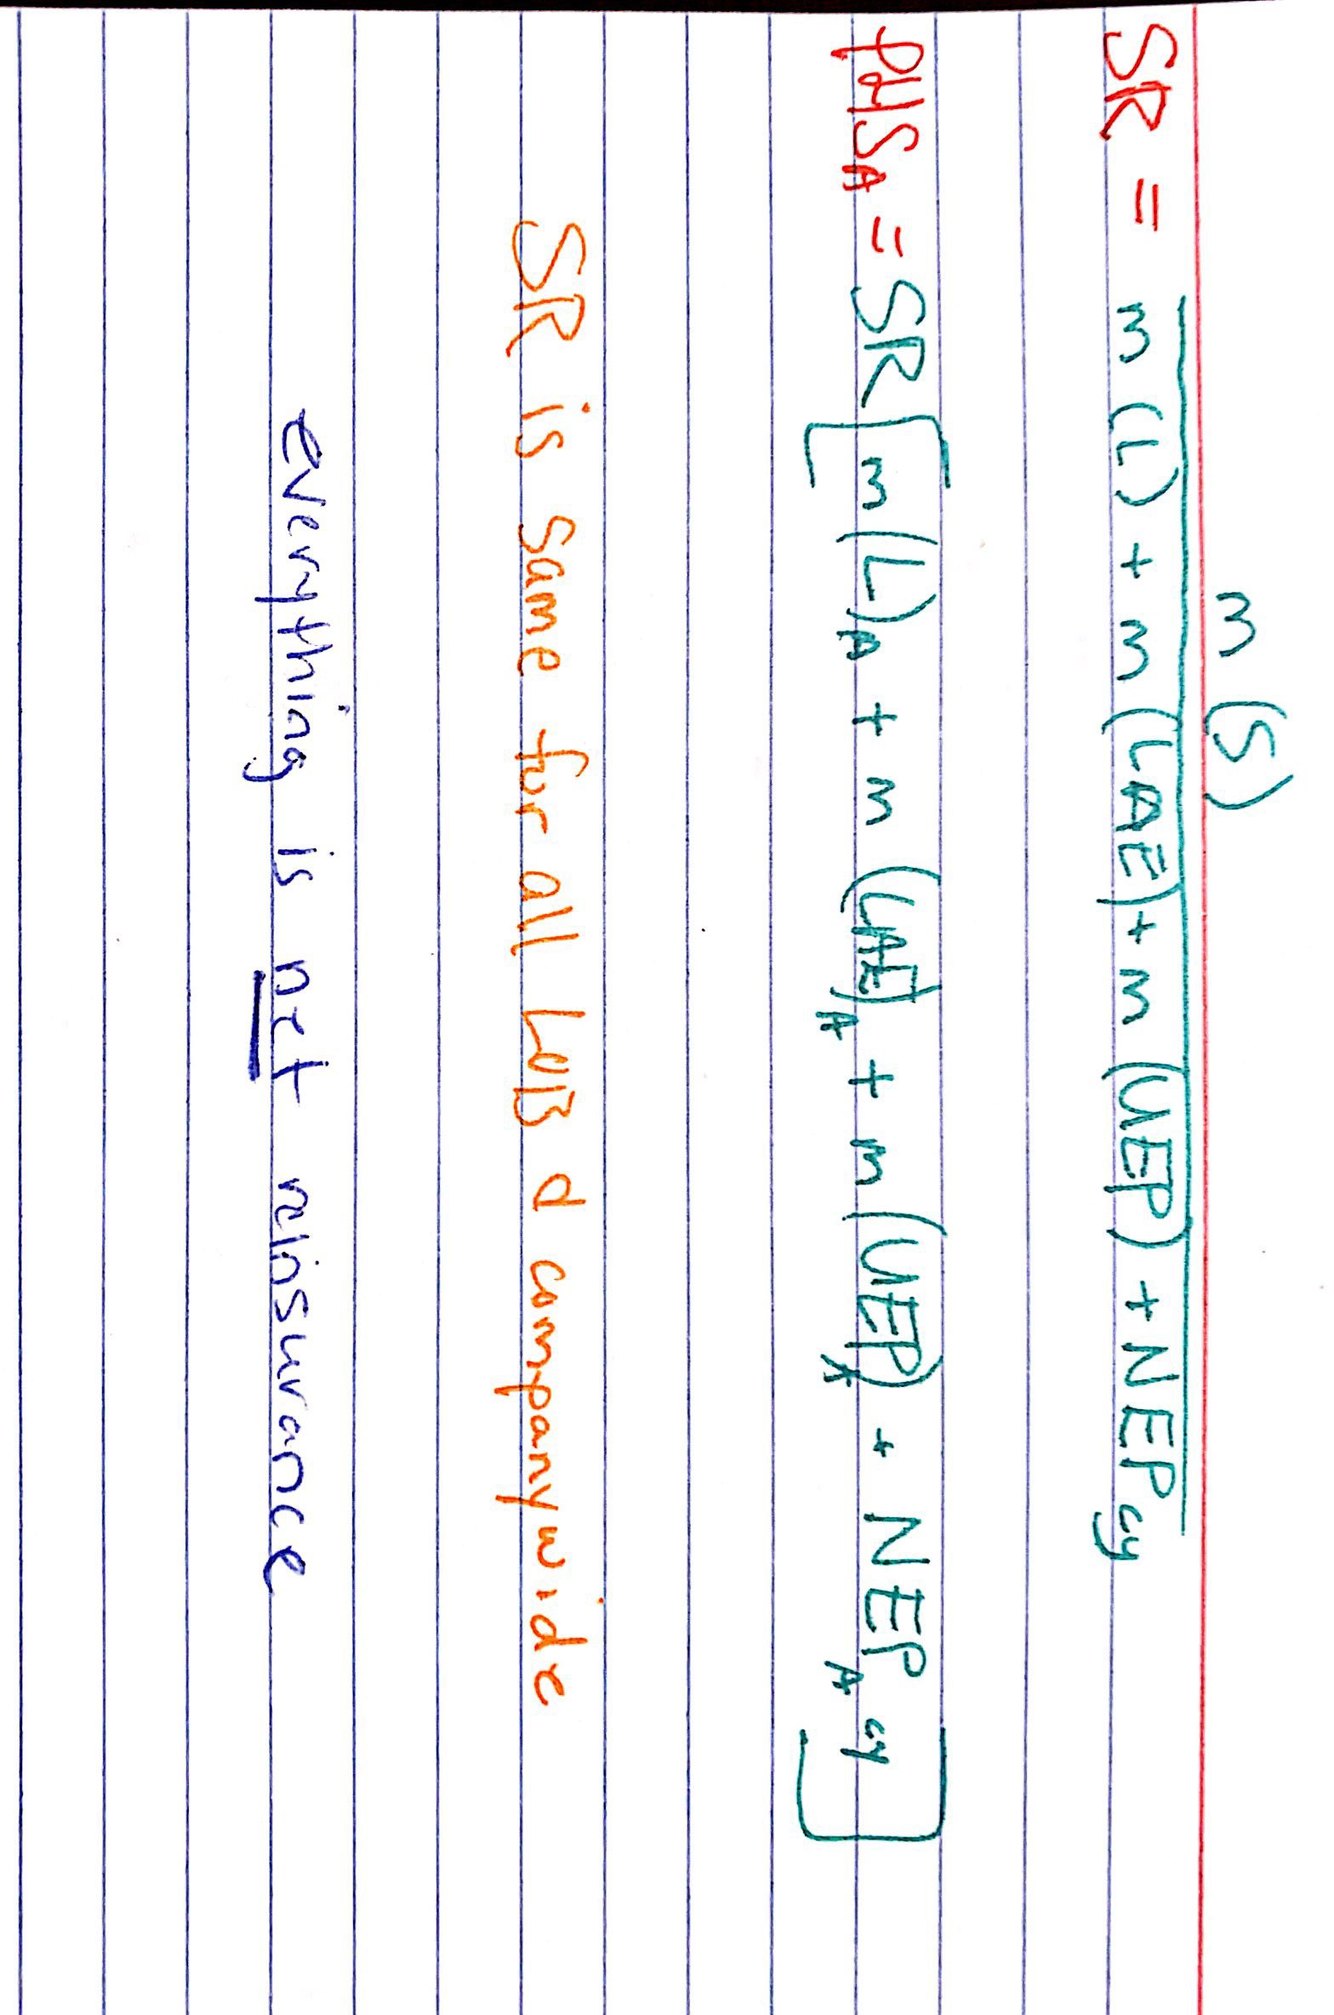 m (S)
SR = m (L) + m (LAE) + m (UEP) + NEP cy
PHS A = SR [ m (L) A + m (LAE) A + m (UEP) A + NEP A cy ]
SR is same for all LOB d companywide
everything is net reinsurance